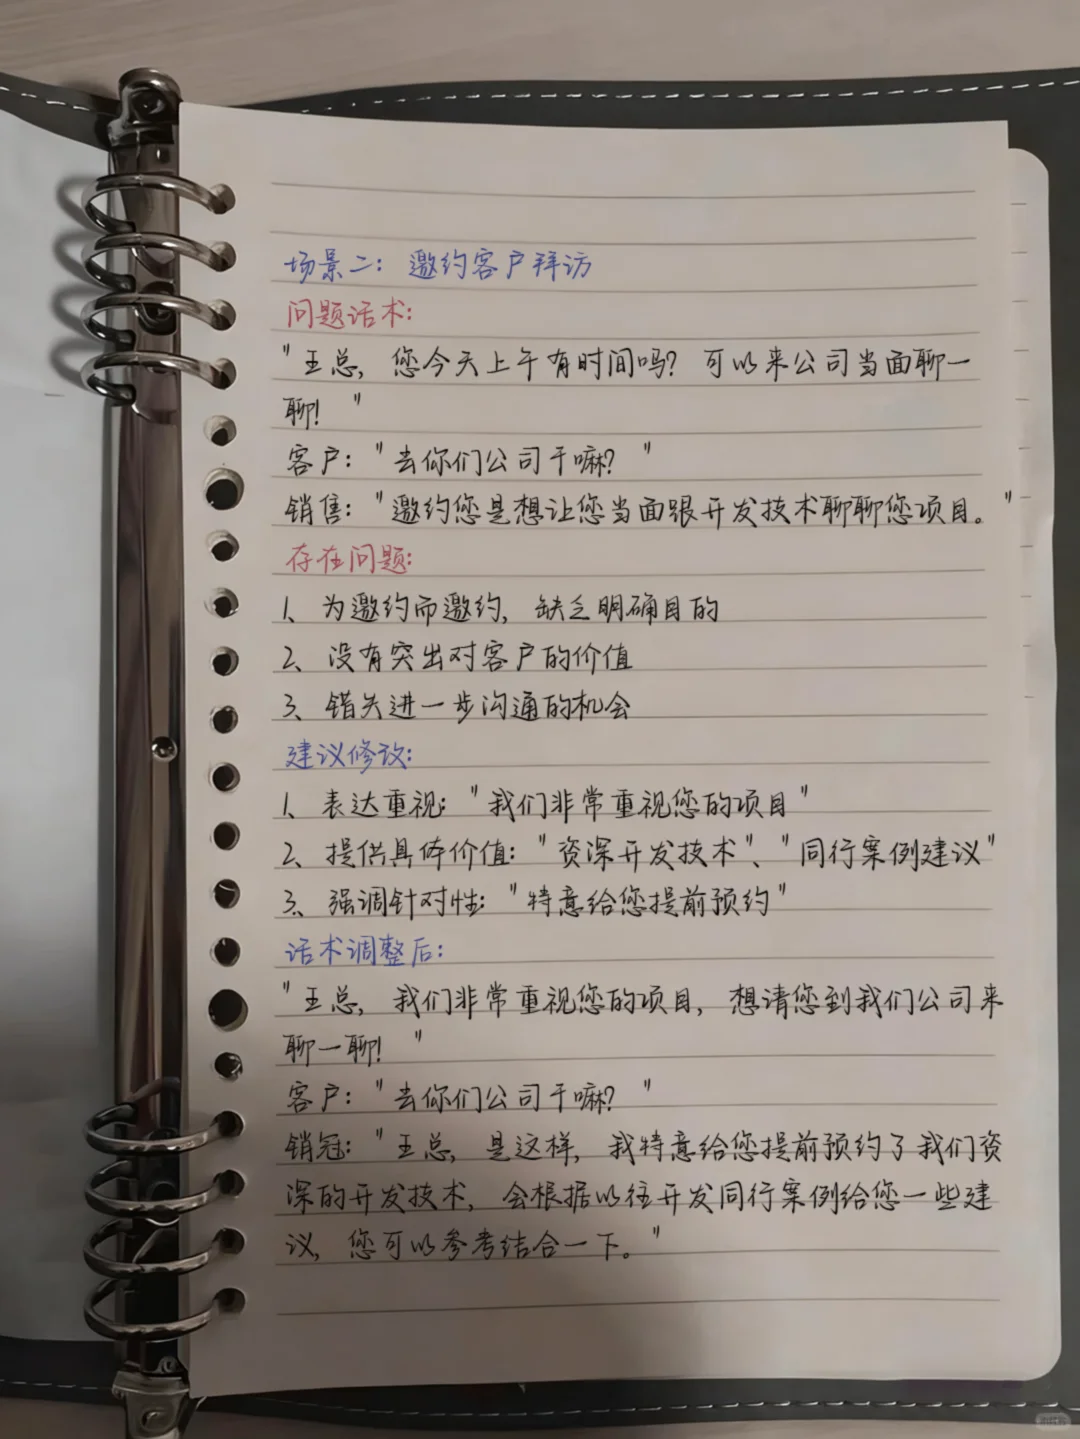 场景二：邀约客户拜访
问题话术：
"王总，您今天上午有时间吗？可以来公司当面聊一
聊！"
客户："去你们公司干嘛？"
销售："邀约您是想让您当面跟开发技术聊聊您项目。"
存在问题：
1、为邀约而邀约，缺乏明确目的
2、没有突出对客户的价值
3、错失进一步沟通的机会
建议修改：
1、表达重视："我们非常重视您的项目"
2、提供具体价值："资深开发技术"、"同行案例建议"
3、强调针对性："特意给您提前预约"
话术调整后：
"王总，我们非常重视您的项目，想请您到我们公司来
聊一聊！"
客户："去你们公司干嘛？"
销冠："王总，是这样，我特意给您提前预约了我们资
深的开发技术，会根据以往开发同行案例给您一些建
议，您可以参考结合一下。"